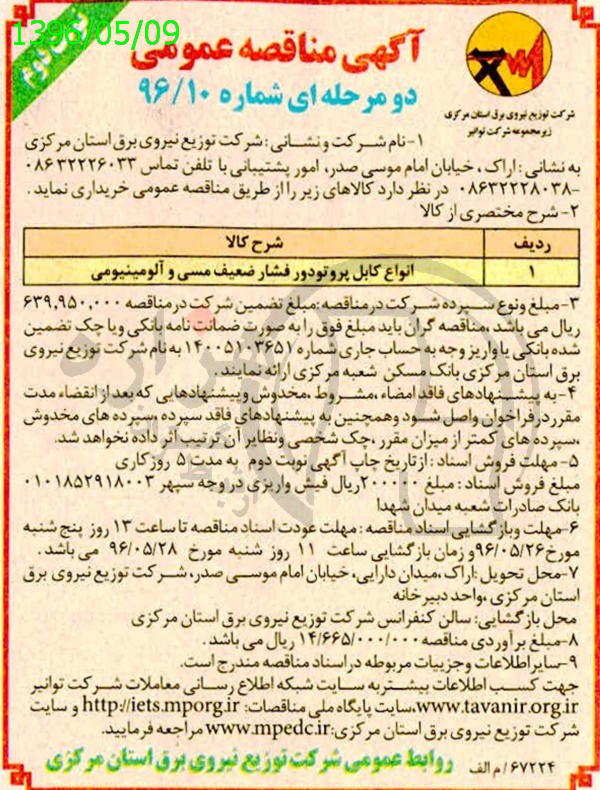 1396/05/09
نوبت دوم
آگهی مناقصه عمومی
دو مرحله ای شماره ۹۶/۱۰
شرکت توزیع نیروی برق استان مرکزی
زیرمجموعه شرکت توانیر
۱-نام شرکت و نشانی : شرکت توزیع نیروی برق استان مرکزی
به نشانی : اراک ، خیابان امام موسی صدر، امور پشتیبانی با تلفن تماس ۰۸۶۳۲۲۲۶۰۳۳
-۰۸۶۳۲۲۲۸۰۳۸ در نظر دارد کالاهای زیر را از طریق مناقصه عمومی خریداری نماید .
۲- شرح مختصری از کالا
ردیف شرح کالا
۱ انواع کابل پروتودور فشار ضعیف مسی و آلومینیومی
۳-مبلغ ونوع سپرده شرکت درمناقصه :مبلغ تضمین شرکت درمناقصه ۶۳۹,۹۵۰,۰۰۰
ریال می باشد ،مناقصه گران باید مبلغ فوق را به صورت ضمانت نامه بانکی ویا چک تضمین
شده بانکی یا واریز وجه به حساب جاری شماره ۱۴۰۰۵۱۰۳۶۵۱ به نام شرکت توزیع نیروی
برق استان مرکزی بانک مسکن شعبه مرکزی ارائه نمایند .
۴-به پیشنهادهای فاقد امضاء ،مشروط ،مخدوش وپیشنهادهایی که بعد از انقضاء مدت
مقرر در فراخوان واصل شود وهمچنین به پیشنهادهای فاقد سپرده ،سپرده های مخدوش
،سپرده های کمتر از میزان مقرر ،چک شخصی ونظایر آن ترتیب اثر داده نخواهد شد.
۵-مهلت فروش اسناد : ازتاریخ چاپ آگهی نوبت دوم به مدت ۵ روز کاری
مبلغ فروش اسناد : مبلغ ۲۰۰۰۰۰ریال فیش واریزی در وجه سپهر ۰۱۰۱۸۵۲۹۱۸۰۰۳
بانک صادرات شعبه میدان شهدا
۶-مهلت وبازگشایی اسناد مناقصه : مهلت عودت اسناد مناقصه تا ساعت ۱۳ روز پنج شنبه
مورخ۹۶/۰۵/۲۶و زمان بازگشایی ساعت ۱۱ روز شنبه مورخ ۹۶/۰۵/۲۸ می باشد .
۷-محل تحویل :اراک ،میدان دارایی، خیابان امام موسی صدر، شرکت توزیع نیروی برق
استان مرکزی ،واحد دبیرخانه
محل بازگشایی: سالن کنفرانس شرکت توزیع نیروی برق استان مرکزی
۸-مبلغ برآوردی مناقصه ۱۴/۶۶۵/۰۰۰/۰۰۰ ریال می باشد .
۹-سایر اطلاعات وجزییات مربوطه در اسناد مناقصه مندرج است.
جهت کسب اطلاعات بیشتر به سایت شبکه اطلاع رسانی معاملات شرکت توانیر
www.tavanir.org.ir،سایت پایگاه ملی مناقصات: http://iets.mporg.ir و سایت
شرکت توزیع نیروی برق استان مرکزی:www.mpedc.ir مراجعه فرمایید.
روابط عمومی شرکت توزیع نیروی برق استان مرکزی
۶۷۲۲۴/ م الف